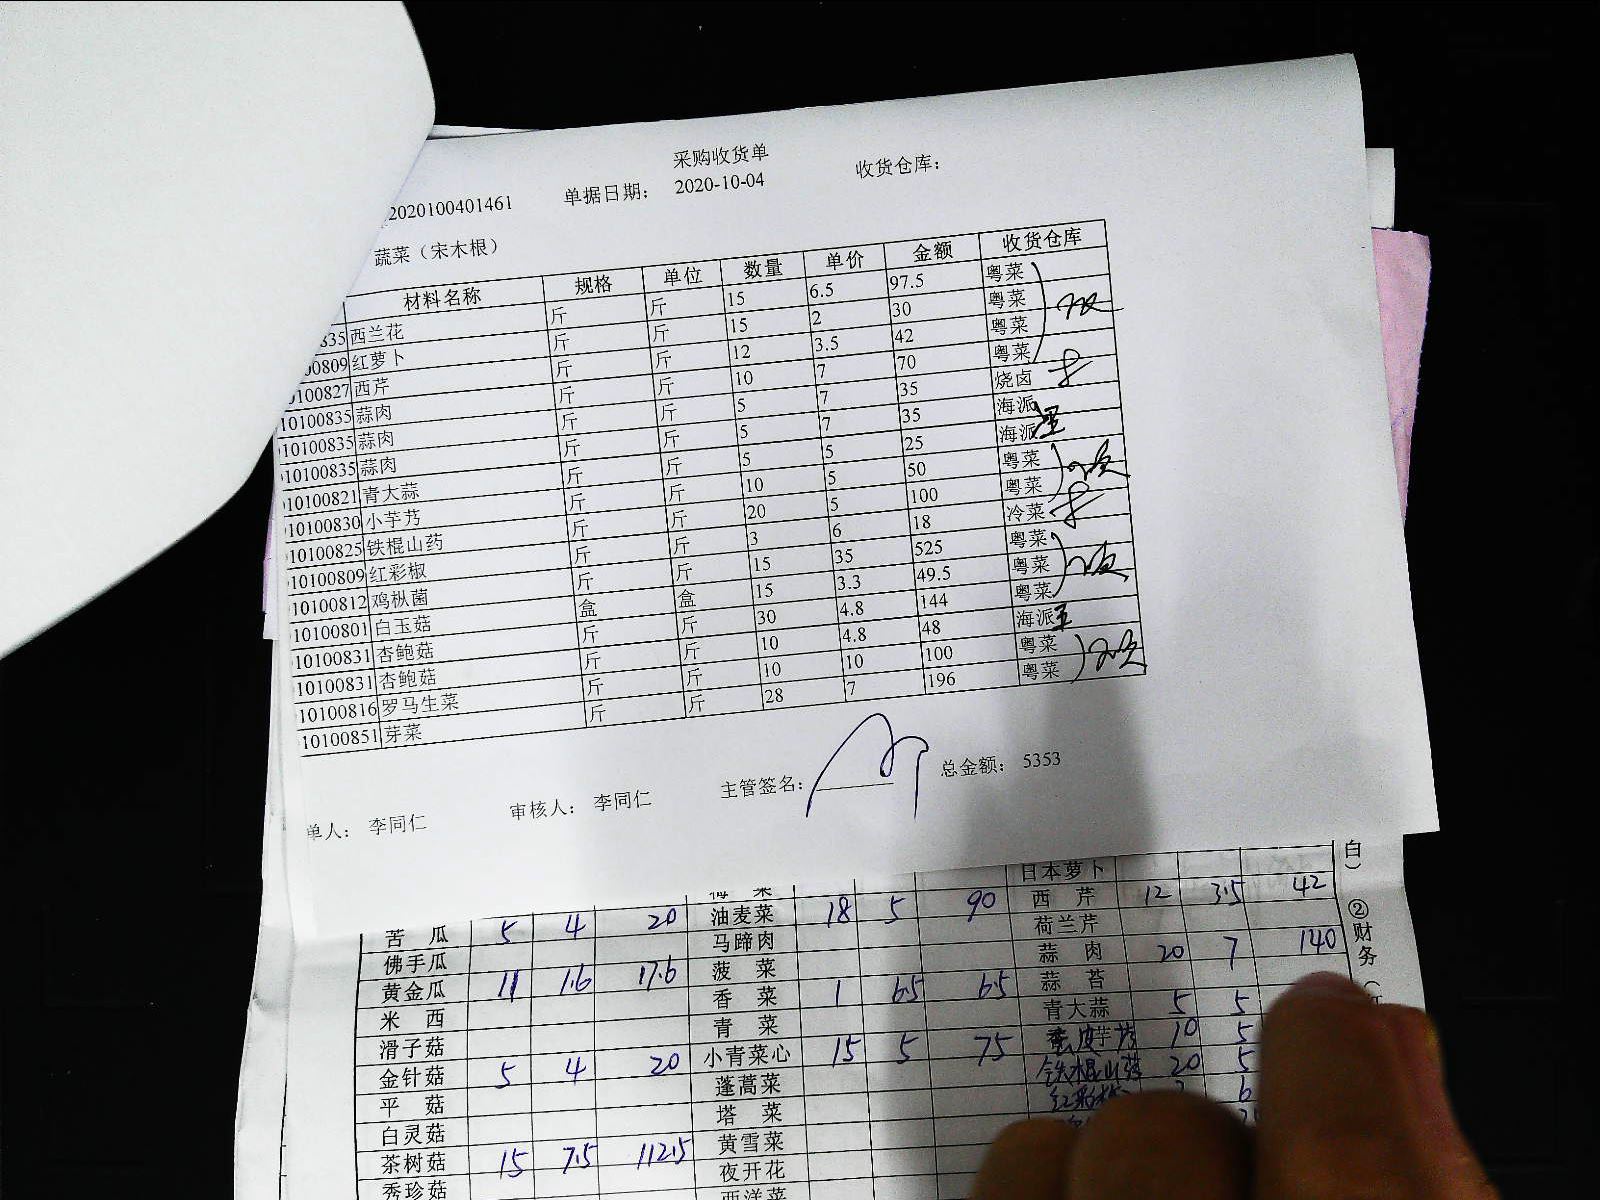 采购收货单
2020100401461 单据日期： 2020-10-04 收货仓库：
蔬菜（宋木根）
材料名称 规格 单位 数量 单价 金额 收货仓库
835 西兰花 斤 斤 15 6.5 97.5 粤菜
00809 红萝卜 斤 斤 15 2 30 粤菜
0100827 西芹 斤 斤 12 3.5 42 粤菜
10100835 蒜肉 斤 斤 10 7 70 粤菜
10100835 蒜肉 斤 斤 5 7 35 烧卤
10100835 蒜肉 斤 斤 5 7 35 海派
10100821 青大蒜 斤 斤 5 5 25 海派
10100830 小芋艿 斤 斤 10 5 50 粤菜
10100825 铁棍山药 斤 斤 20 5 100 粤菜
10100809 红彩椒 斤 斤 3 6 18 冷菜
10100812 鸡枞菌 斤 斤 15 35 525 粤菜
10100801 白玉菇 盒 盒 15 3.3 49.5 粤菜
10100831 杏鲍菇 斤 斤 30 4.8 144 粤菜
10100831 杏鲍菇 斤 斤 10 4.8 48 海派
10100816 罗马生菜 斤 斤 10 10 100 粤菜
10100851 芽菜 斤 斤 28 7 196 粤菜
单人： 李同仁 审核人： 李同仁 主管签名： 总金额： 5353
日本萝卜
苦瓜 5 4 20 油麦菜 18 5 90 西芹 12 3.5 42
佛手瓜 马蹄肉 荷兰芹
黄金瓜 11 1.6 17.6 菠菜 蒜肉 20 7 140
米西 香菜 1 6.5 6.5 蒜苔
滑子菇 青菜 青大蒜 5 5
金针菇 5 4 20 小青菜心 15 5 75 芋艿 10 5
平菇 蓬蒿菜 铁棍山药 20 5
白灵菇 塔菜 红彩椒 6
茶树菇 15 7.5 112.5 黄雪菜
秀珍菇 夜开花
西洋菜
白）
②财务